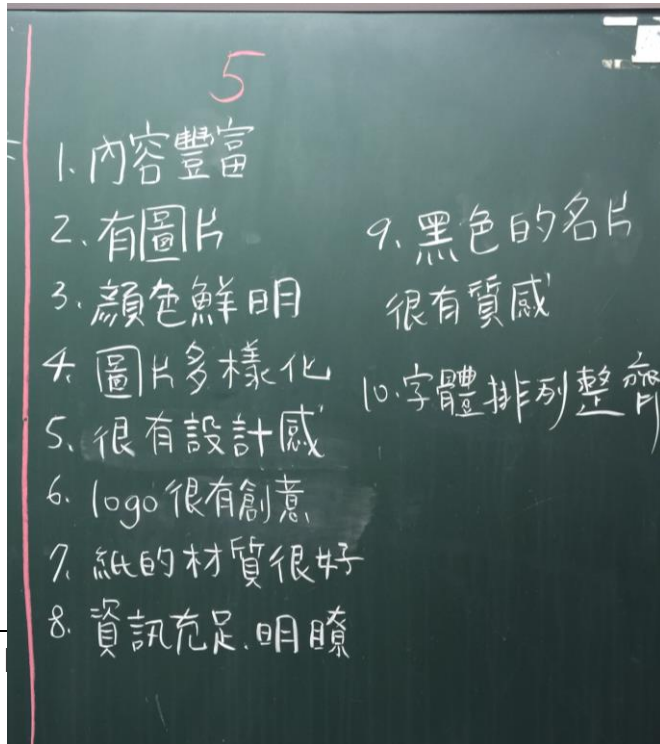 5
1. 內容豐富
2. 有圖片
3. 顏色鮮明
4. 圖片多樣化
5. 很有設計感
6. logo很有創意
7. 紙的材質很好
8. 資訊充足.明瞭
9. 黑色的名片
很有質感
10. 字體排列整齊